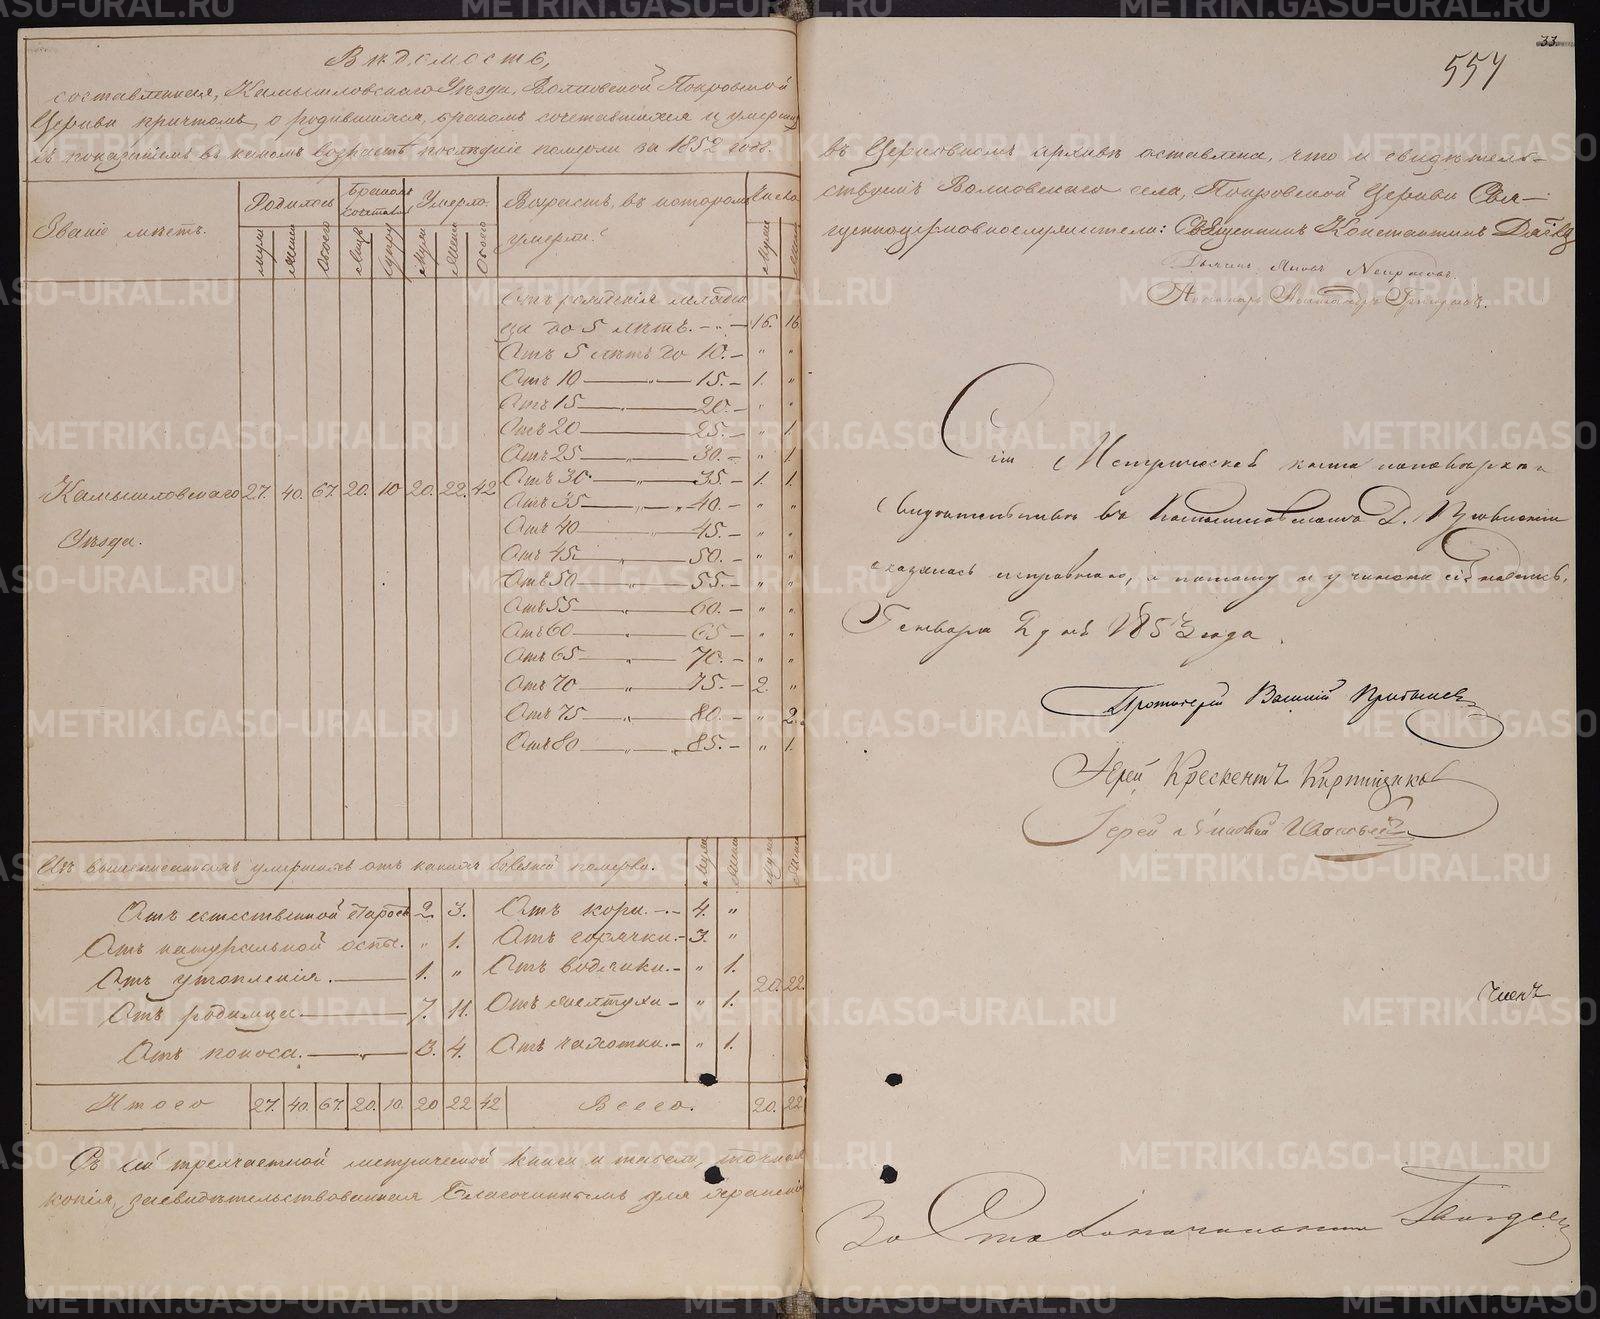 Вѣдомость,
составленная, Камышловскаго Уѣзда, Волковской Покровской
Церкви причтомъ, о родившихся, бракомъ сочетавшихся и умершихъ
съ показаніемъ въ какомъ возрастѣ послѣдніе померли за 1852 годъ.
Званіе мѣстъ.
Родилось
Бракомъ сочетались
Умерло
Возрастъ, въ которомъ умерли.
Число
муж. жен. обоего лицъ супру муж. жен. обоего
муж. жен.
Отъ рожденія младен
ца до 5 лѣтъ. 16. 16.
Отъ 5 лѣтъ до 10. „ „
Отъ 10 „ 15. 1. „
Отъ 15 „ 20. „ „
Отъ 20 25. „ 1.
Отъ 25 „ 30. „ 1
Камышловскаго 27. 40. 67. 20. 10 20. 22. 42
Уѣзда.
Отъ 30 „ 35. 1. 1.
Отъ 35 „ 40. „ „
Отъ 40 45. „ „
Отъ 45 „ 50. „ „
Отъ 50 „ 55. „ „
Отъ 55 „ 60. „ „
Отъ 60 „ 65 „ „
Отъ 65 „ 70. „ „
Отъ 70 „ 75. 2. „
Отъ 75 „ 80. „ 2.
Отъ 80 „ 85. „ 1.
Изъ вышеписанныхъ умершихъ отъ какихъ болѣзней померли. муж. жен. муж. жен.
Отъ естественной старос 2. 3. Отъ кори. 4. „
Отъ натуральной оспы. „ 1. Отъ горячки. 3. „
Отъ утопленія. 1. „ Отъ водянки. „ 1.
20. 22.
Отъ родимца 7. 11. Отъ желтухи „ 1.
Отъ поноса. 3. 4. Отъ чахотки. „ 1.
Итого 27. 40. 67. 20. 10. 20 22 42 Всего. 20. 22
Съ сей трехчастной метрической книги и табели, точная
копія, засвидѣтельствованная Благочиннымъ для храненія
33
557
въ Церковномъ архивѣ оставлена, что и свидѣтель-
ствуемъ Волковскаго села, Покровской Церкви Свя-
щенноцерковнослужители: Священникъ Константинъ
Пономарь
Сія Метрическая книга
въ Камышловскомъ Д. Правленіи
оказалась исправною, а потому и учинена сія надпись.
Генваря 2 дня 1853 года.
Протоіерей Василій
Іерей Крескентъ Кирпищиковъ
Іерей
Членъ
За Столоначальника
METRIKI.GASO-URAL.RU